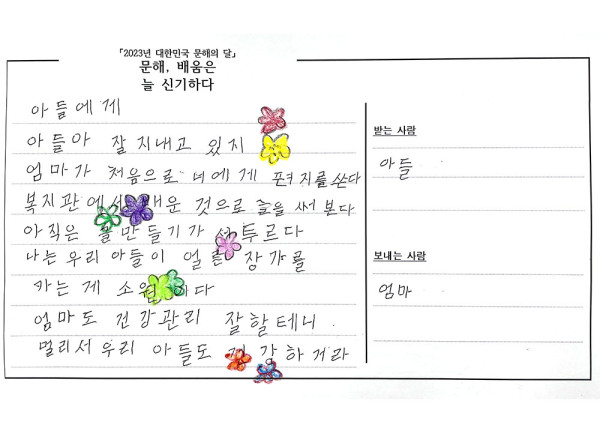 「2023년 대한민국 문해의 달」
문해, 배움은
늘 신기하다
아들에게
아들아 잘 지내고 있지
엄마가 처음으로 너에게 쪈지를 쓴다
복지관에서 배운 것으로 글을 써 본다
아직은 글 만들기가 서투르다
나는 우리 아들이 얼른 장가를
가는 게 소원이다
엄마도 건강관리 잘할테니
멀리서 우리 아들도 건강하거라
받는 사람
아들
보내는 사람
엄마